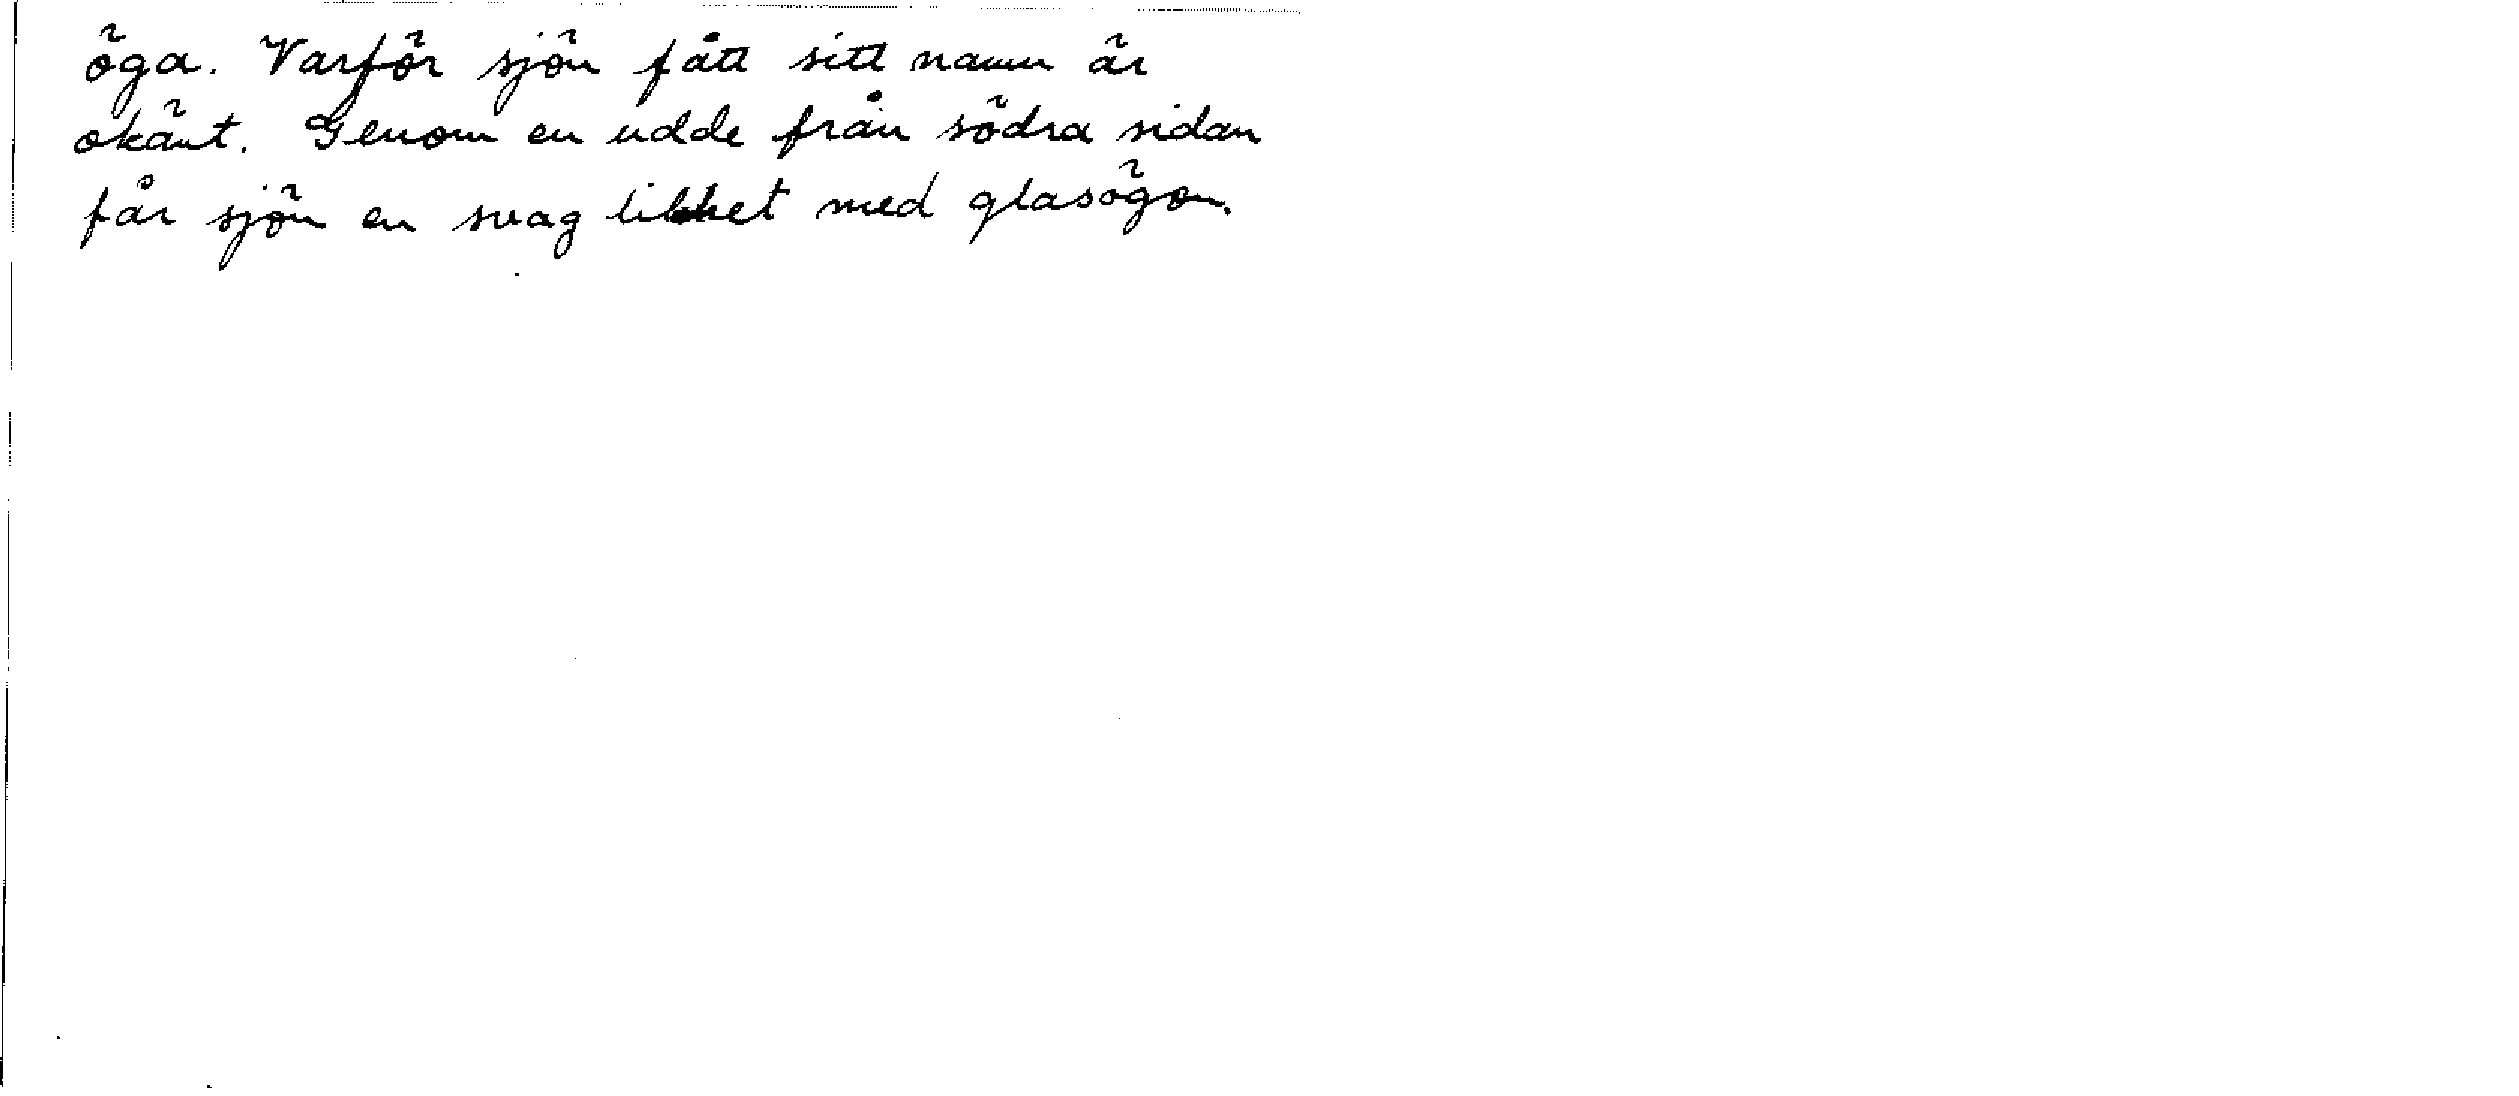 öga. Varför sjön fått sitt namn är
okänt. Genom en udde från södra sidan
får sjön en svag likhet med glasögon.